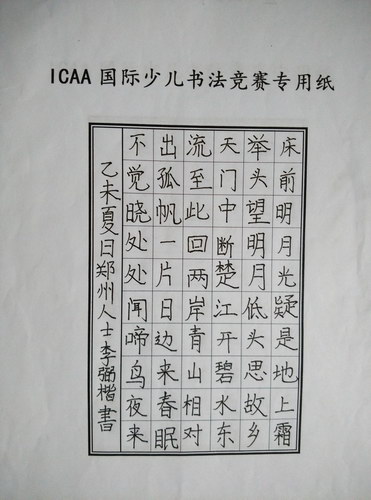 ICAA 国际少儿书法竞赛专用纸
床前明月光疑是地上霜
举头望明月低头思故乡
天门中断楚江开碧水东
流至此回两岸青山相对
出孤帆一片日边来春眠
不觉晓处处闻啼鸟夜来
乙未夏日郑州人士李弼楷書